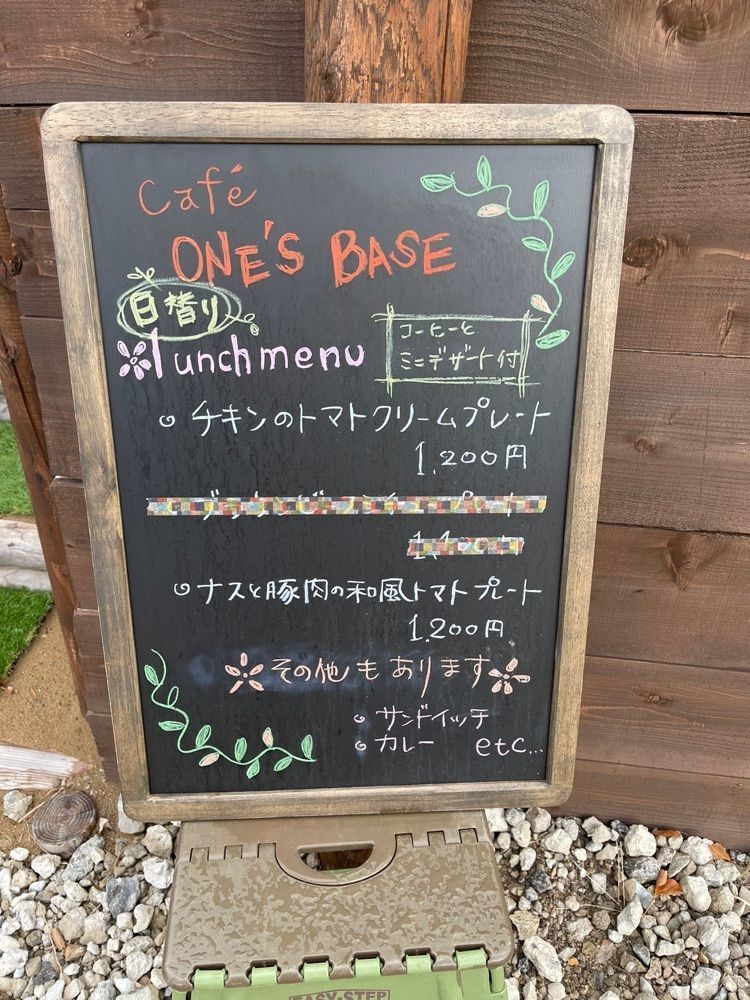 Café
ONE'S BASE
日替り
lunch menu
コーヒーと
ミニデザート付
チキンのトマトクリームプレート
1,200円
ナスと豚肉の和風トマトプレート
1,200円
その他もあります
サンドイッチ
カレー etc...
EASY-STEP